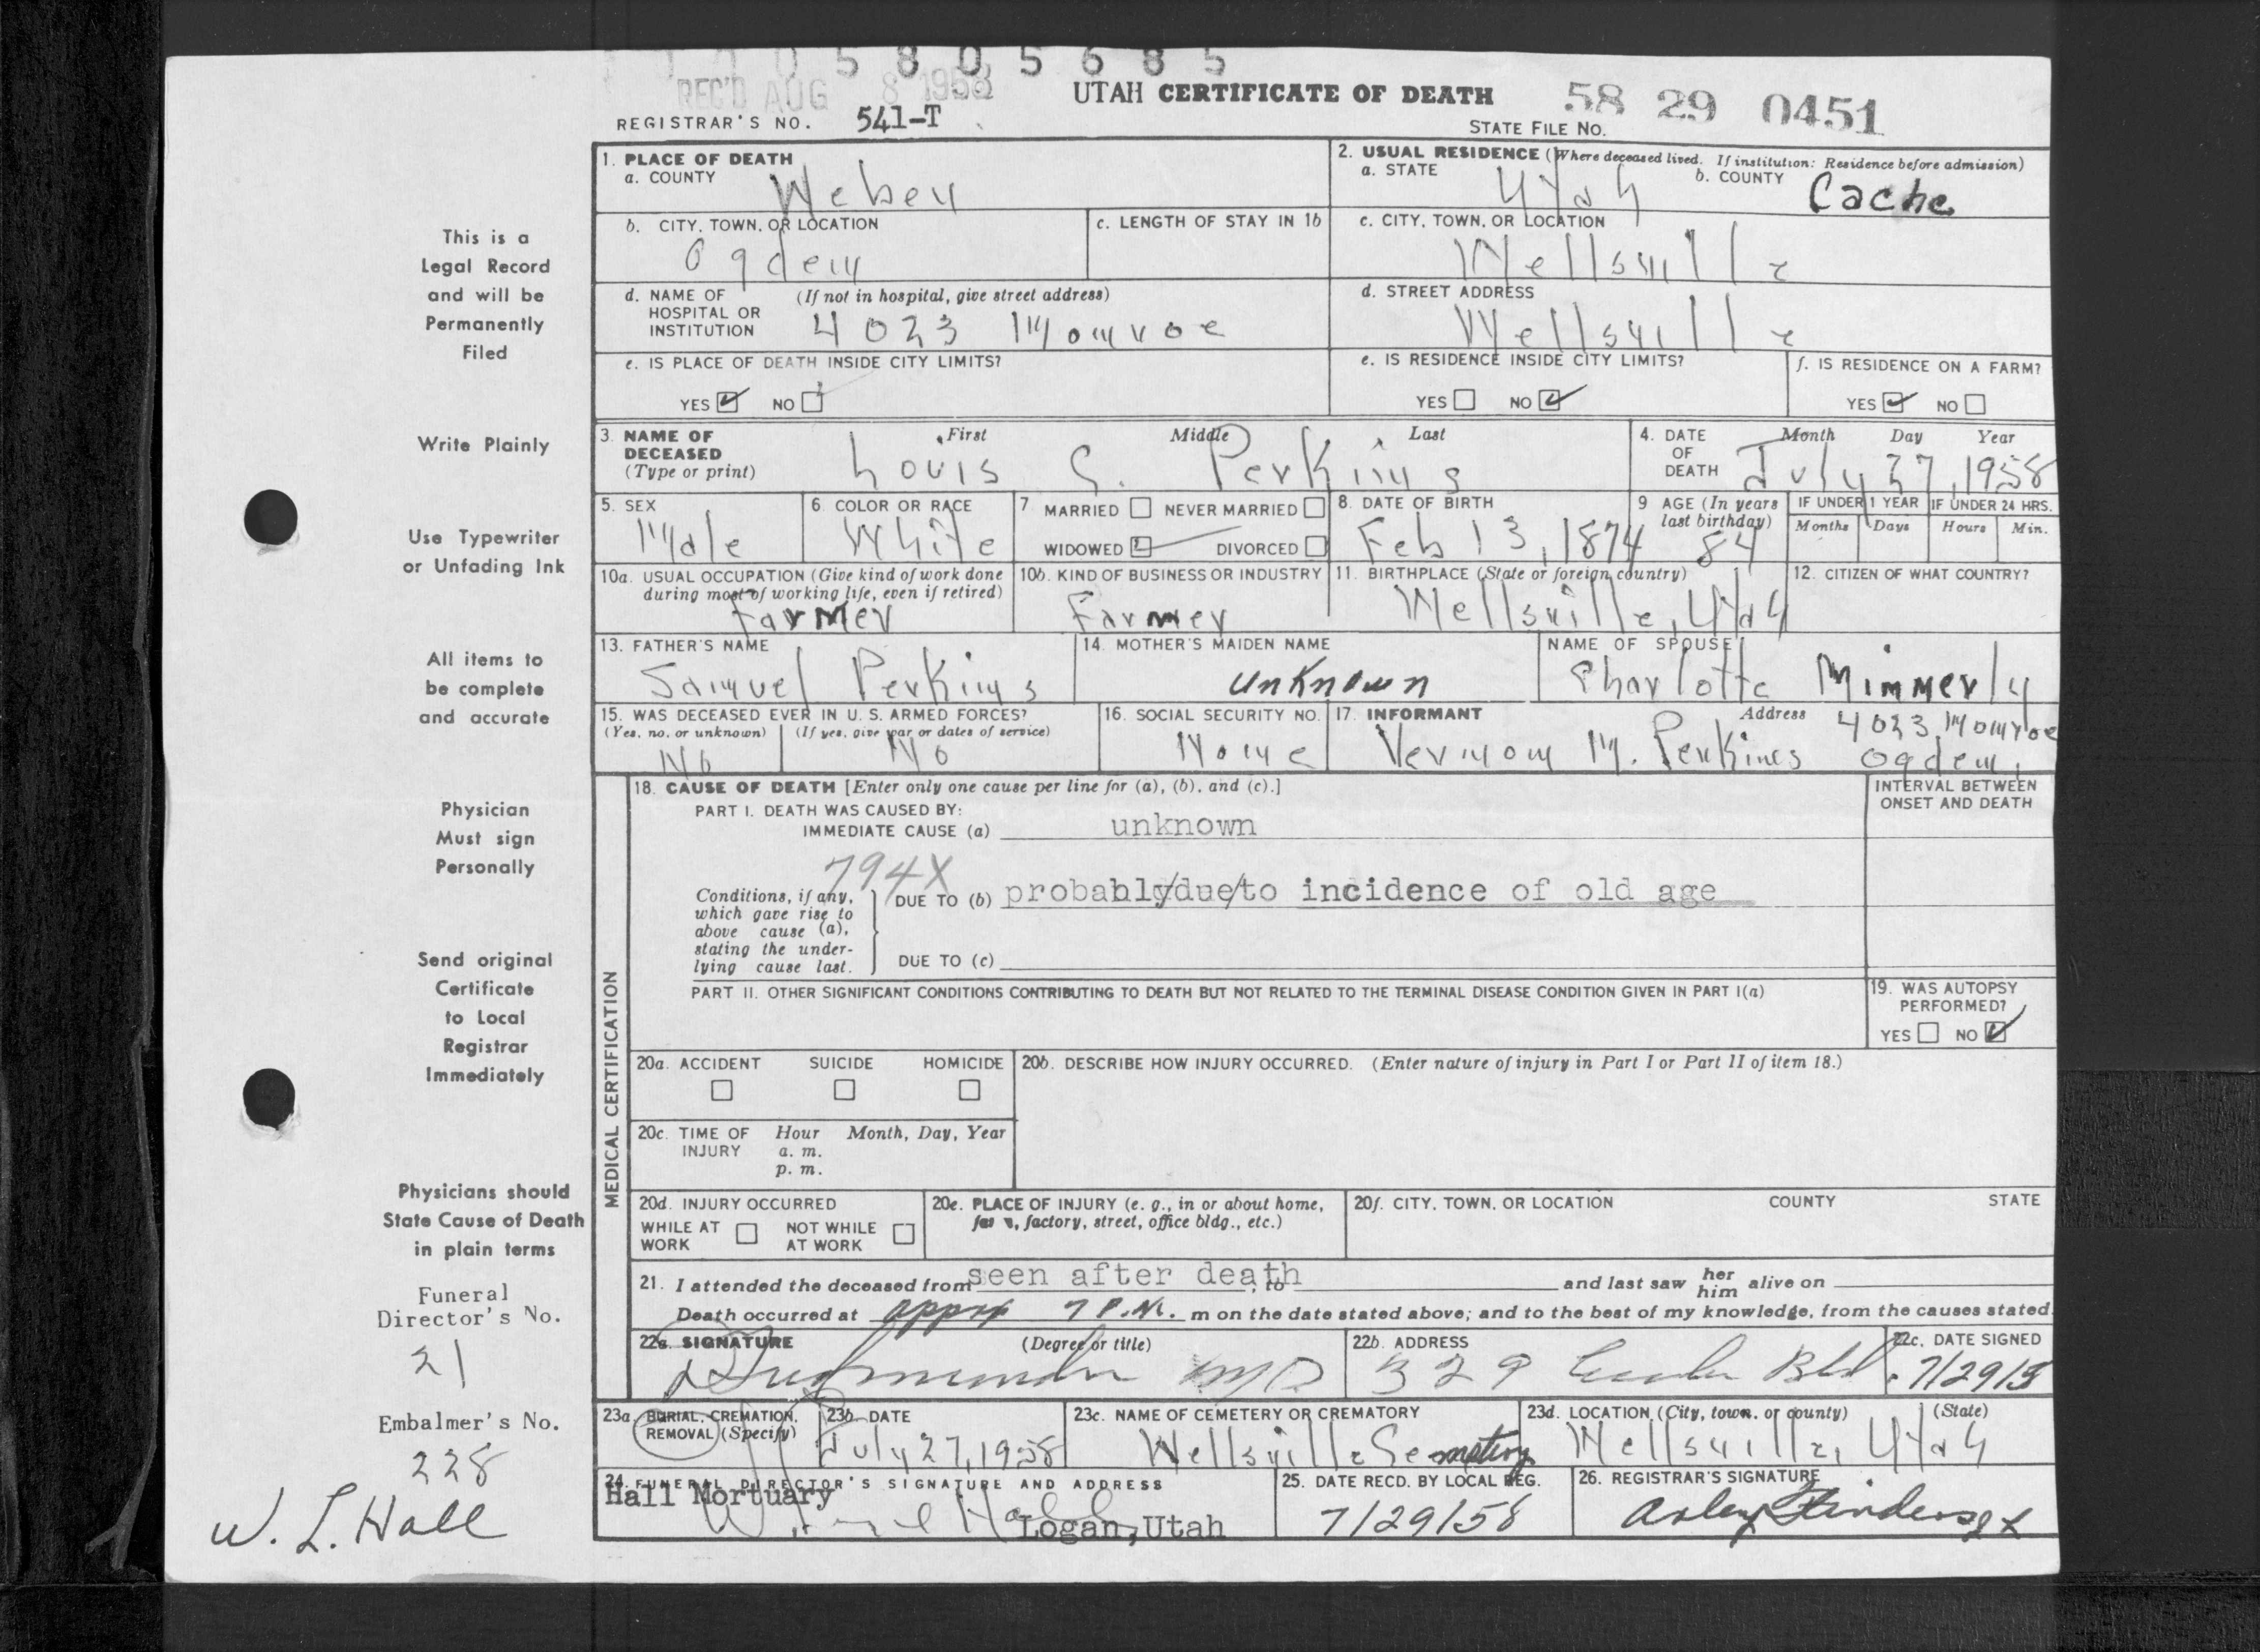 5805685
REC'D AUG 8 1958
UTAH CERTIFICATE OF DEATH
58 29 0451
REGISTRAR'S NO. 541-T
STATE FILE NO.
This is a
Legal Record
and will be
Permanently
Filed
Write Plainly
Use Typewriter
or Unfading Ink
All items to
be complete
and accurate
Physician
Must sign
Personally
Send original
Certificate
to Local
Registrar
Immediately
Physicians should
State Cause of Death
in plain terms
Funeral
Director's No.
21
Embalmer's No.
228
W. L. Hall
1. PLACE OF DEATH
a. COUNTY Weber
2. USUAL RESIDENCE (Where deceased lived. If institution: Residence before admission)
a. STATE Utah b. COUNTY Cache
b. CITY, TOWN, OR LOCATION Ogden
c. LENGTH OF STAY IN 1b
c. CITY, TOWN, OR LOCATION Wellsville
d. NAME OF HOSPITAL OR INSTITUTION (If not in hospital, give street address) 4023 Monroe
d. STREET ADDRESS Wellsville
e. IS PLACE OF DEATH INSIDE CITY LIMITS?
YES NO
e. IS RESIDENCE INSIDE CITY LIMITS?
YES NO
f. IS RESIDENCE ON A FARM?
YES NO
3. NAME OF DECEASED (Type or print) First Middle Last
Louis S. Perkins
4. DATE OF DEATH Month Day Year
July 27, 1958
5. SEX Male
6. COLOR OR RACE White
7 MARRIED NEVER MARRIED
WIDOWED DIVORCED
8. DATE OF BIRTH Feb 13, 1874
9 AGE (In years last birthday) 84
IF UNDER 1 YEAR Months Days
IF UNDER 24 HRS. Hours Min.
10a. USUAL OCCUPATION (Give kind of work done during most of working life, even if retired) Farmer
10b. KIND OF BUSINESS OR INDUSTRY Farmer
11. BIRTHPLACE (State or foreign country) Wellsville, Utah
12. CITIZEN OF WHAT COUNTRY?
13. FATHER'S NAME Samuel Perkins
14. MOTHER'S MAIDEN NAME unknown
NAME OF SPOUSE Charlotte Wimmerly
15. WAS DECEASED EVER IN U. S. ARMED FORCES?
(Yes, no, or unknown) No (If yes, give war or dates of service) No
16. SOCIAL SECURITY NO. None
17. INFORMANT Vernon M. Perkins Address 4023 Monroe Ogden,
MEDICAL CERTIFICATION
18. CAUSE OF DEATH [Enter only one cause per line for (a), (b), and (c).]
INTERVAL BETWEEN ONSET AND DEATH
PART I. DEATH WAS CAUSED BY:
IMMEDIATE CAUSE (a) unknown
794X
Conditions, if any, which gave rise to above cause (a), stating the underlying cause last.
DUE TO (b) probably/due/to incidence of old age
DUE TO (c)
PART II. OTHER SIGNIFICANT CONDITIONS CONTRIBUTING TO DEATH BUT NOT RELATED TO THE TERMINAL DISEASE CONDITION GIVEN IN PART I(a)
19. WAS AUTOPSY PERFORMED?
YES NO
20a. ACCIDENT SUICIDE HOMICIDE
20b. DESCRIBE HOW INJURY OCCURRED. (Enter nature of injury in Part I or Part II of item 18.)
20c. TIME OF INJURY Hour Month, Day, Year
a. m.
p. m.
20d. INJURY OCCURRED
WHILE AT WORK NOT WHILE AT WORK
20e. PLACE OF INJURY (e. g., in or about home, factory, street, office bldg., etc.)
20f. CITY, TOWN, OR LOCATION COUNTY STATE
21. I attended the deceased from seen after death, to and last saw her him alive on
Death occurred at approx 7 P.M. m on the date stated above; and to the best of my knowledge, from the causes stated.
22a. SIGNATURE (Degree or title) MD
22b. ADDRESS 329
22c. DATE SIGNED 7/29/5
23a. BURIAL, CREMATION, REMOVAL (Specify)
23b. DATE July 27, 1958
23c. NAME OF CEMETERY OR CREMATORY Wellsville Cemetery
23d. LOCATION (City, town, or county) (State) Wellsville, Utah
24. FUNERAL DIRECTOR'S SIGNATURE AND ADDRESS
Hall Mortuary
Logan, Utah
25. DATE RECD. BY LOCAL REG. 7/29/58
26. REGISTRAR'S SIGNATURE